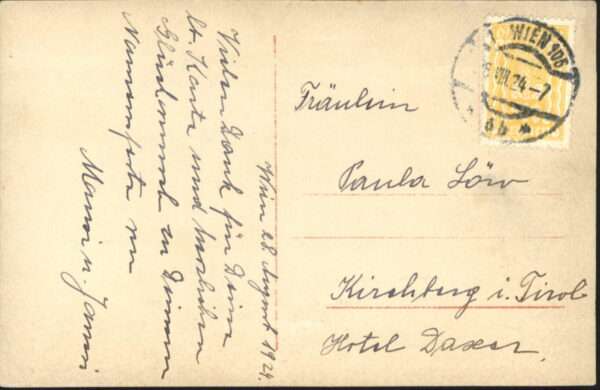 Wien August 1924.
Vielen Dank für Deine
lb. Karte und herzlichen
Glückwunsch zu Deinem
Namensfeste von
u.
Fräulein
Paula Löw
Kirchberg i. Tirol
Hotel Daxer.
WIEN 105
VIII.24-7
* 6b *